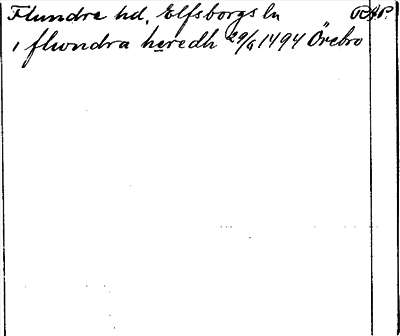 Flundre hd, Elfsborgs ln RAP.
i flwndra heredh 29/6 1494 Örebro